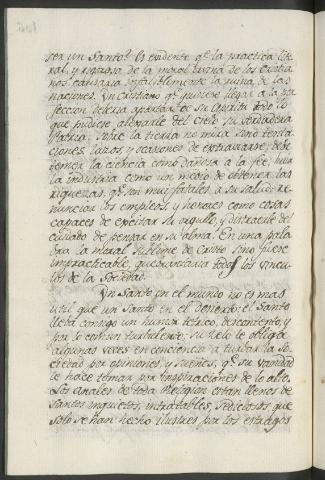 ser un Santo? Es evidente qe. la practica lite
ral, y rigorosa de la moral divina de los Cristia
nos causaria infaliblemente la ruina de las
naciones. Un Cristiano qe. pudiese llegar a la per
feccion deberia apartar de su espiritu todo lo
que pudiese alejarle del cielo su verdadera
Patria. Sobre la tierra no mira sino tenta
ciones, lazos, y ocasiones de extraviarse; debe
temer la ciencia como dañosa a la fee; huir
la industria como un medio de obtener las
riquezas, qe. son muy fatales a su salud; re
nunciar los empleos, y honores como cosas
capaces de excitar su orgullo, y distraerle del
cuidado de pensar en su alma. En una pala
bra la moral sublime de Cristo sino fuese
impracticable, quebrantaria todos los vincu
los de la Sociedad.
Un Santo en el mundo no es mas
util que un Santo en el desierto: el Santo
lleba consigo un humor tetrico, descontento, y
por lo comun turbulento; su zelo le obliga
algunas veces en conciencia a turbar la So
ciedad por opiniones, y sueños, qe. su vanidad
le hace tomar por inspiraciones de lo alto.
Los anales de toda Religion estan llenos de
Santos inquietos, intratables, sediciosos, que
solo se han hecho ilustres por los estragos